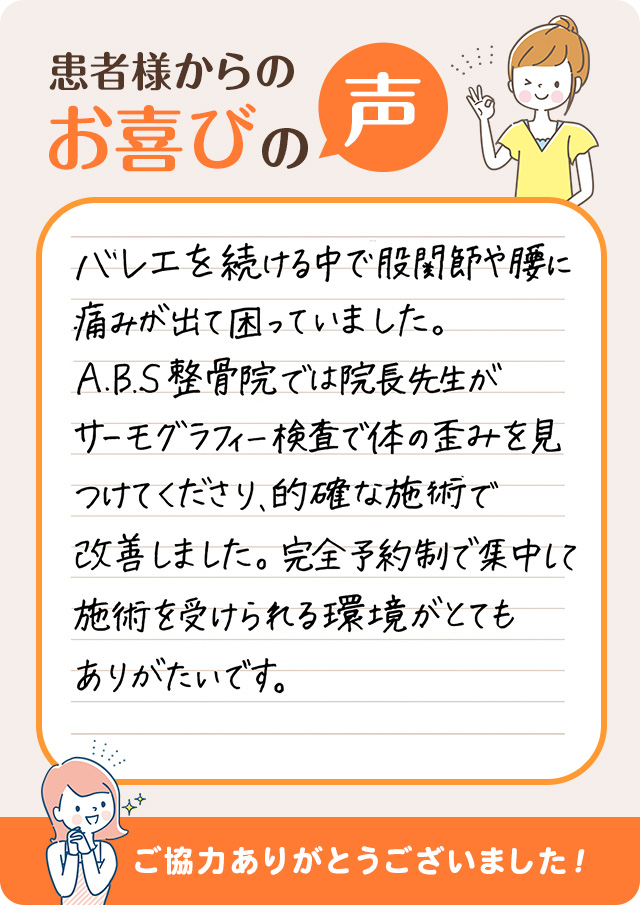 患者様からの
お喜びの声
バレエを続ける中で股関節や腰に
痛みが出て困っていました。
A.B.S整骨院では院長先生が
サーモグラフィー検査で体の歪みを見
つけてくださり、的確な施術で
改善しました。完全予約制で集中して
施術を受けられる環境がとても
ありがたいです。
ご協力ありがとうございました!